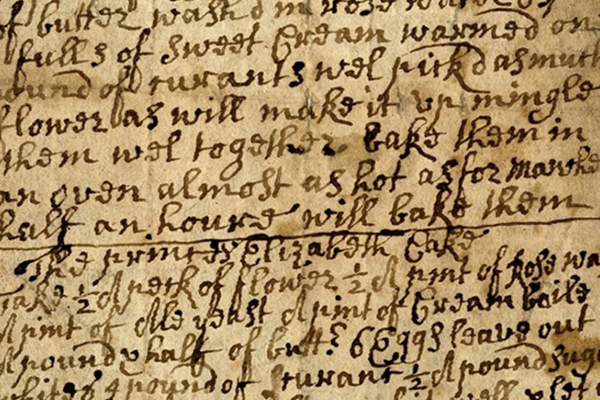 of butter wash'd in rose water
fulls of sweet Cream warmed on
pound of currants wel pick'd as much
flower as will make it up mingle
them wel together bake them in
an oven almost as hot as for
half an houre will bake them
The princes Elizabeth Cake
Take ½ A peck of flower ½ A pint of Rose wa
A pint of Ale yeast A pint of Cream boile
A pound & half of butt: 6 Eggs leave out
whites 4 pound of Currant ½ A pound suga